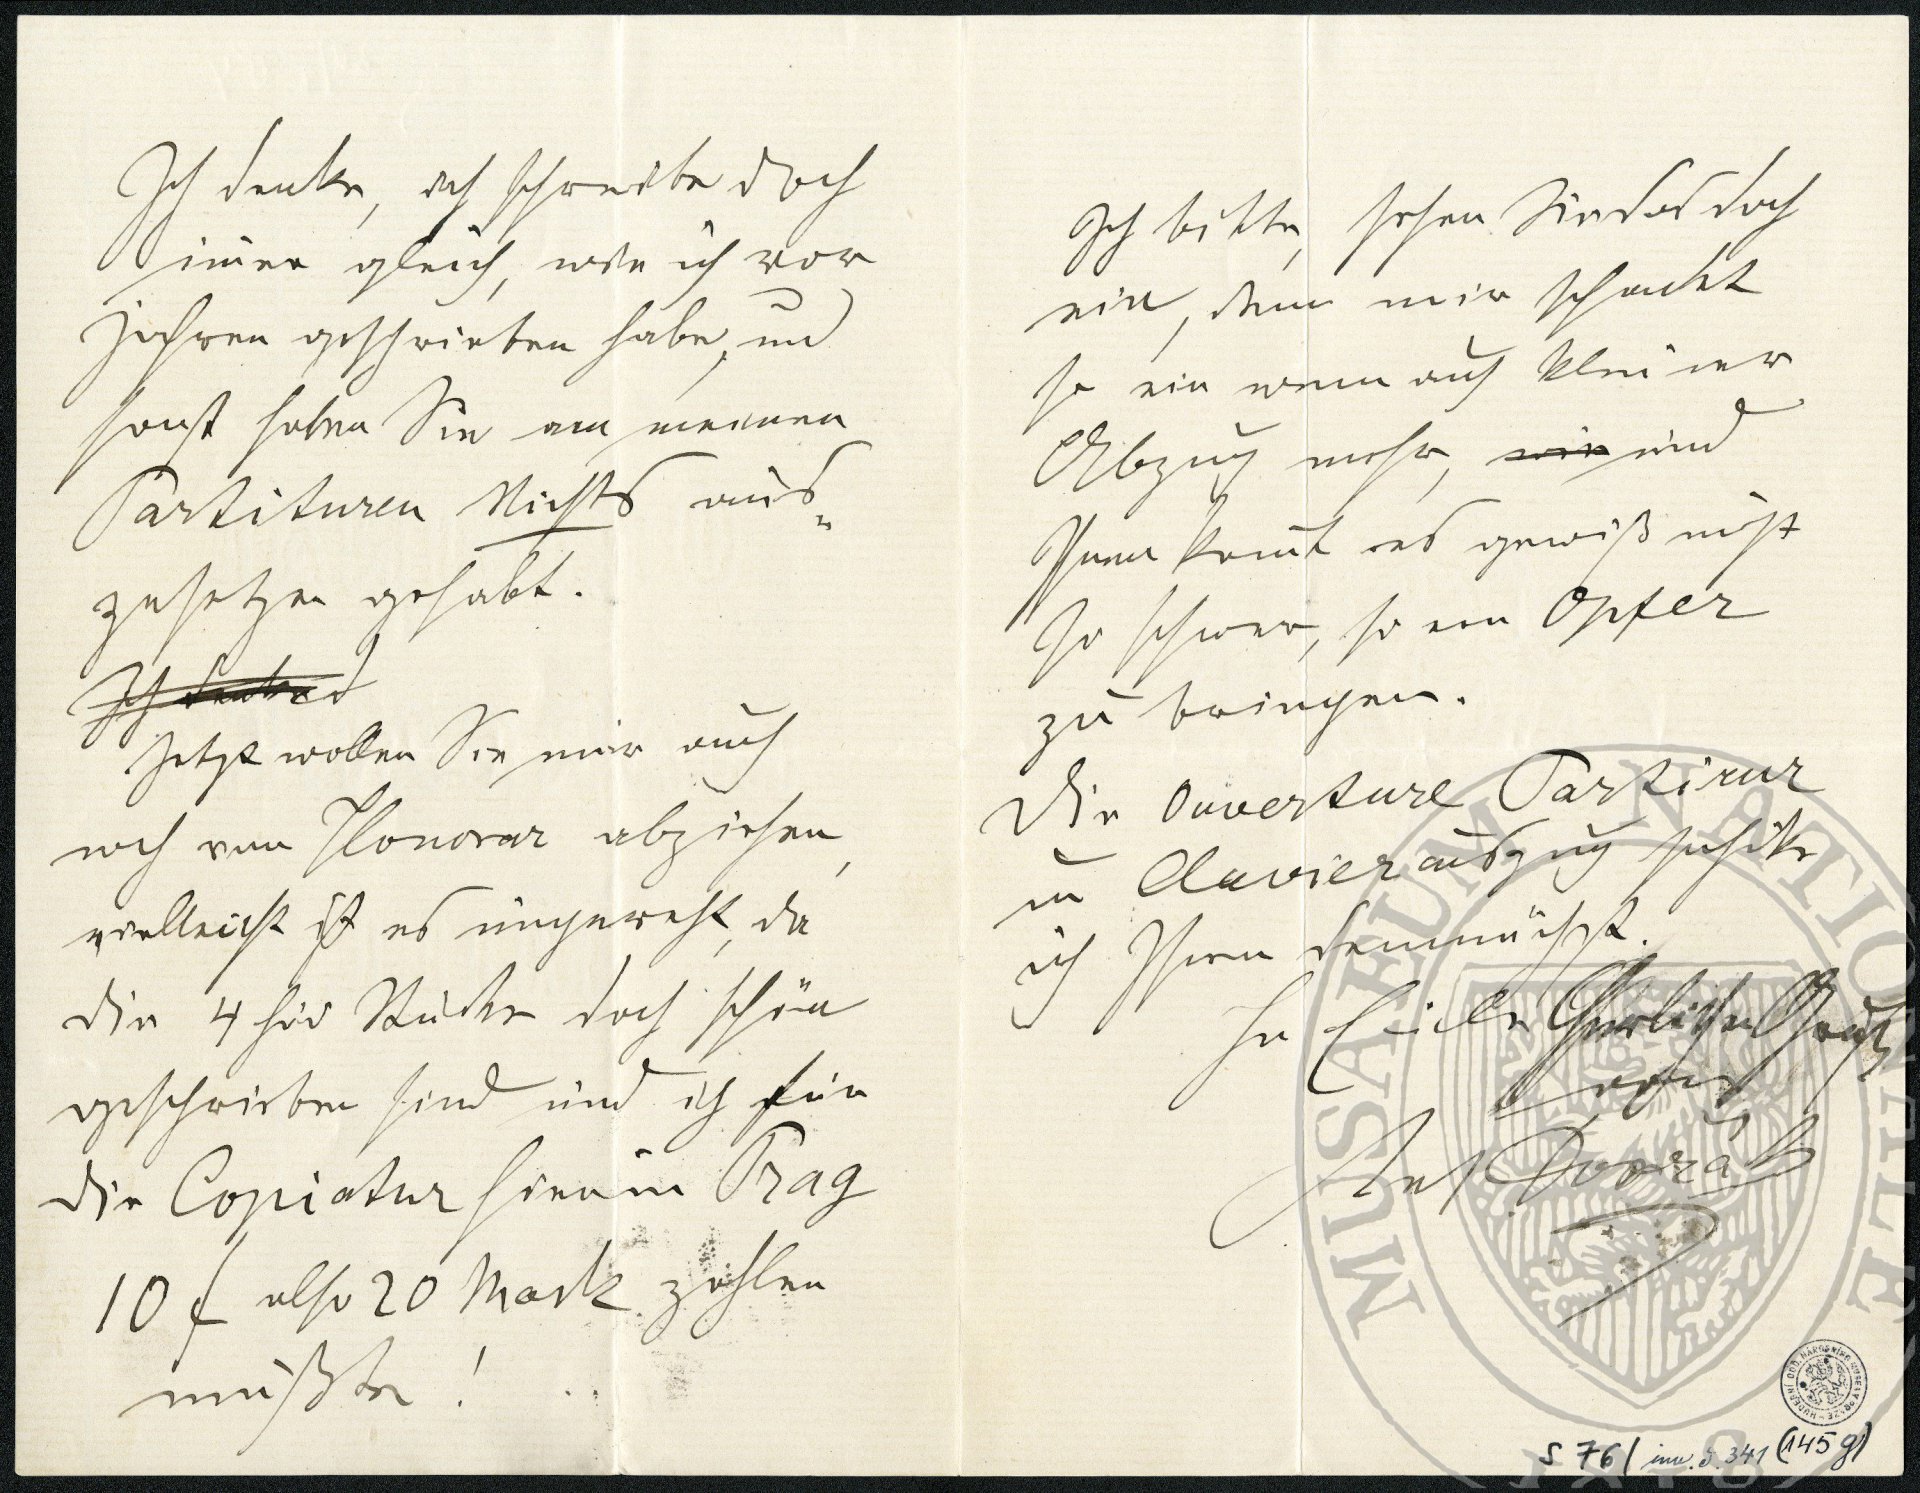 Ich denke, ich schreibe doch
im̄er gleich, wie ich vor
Jahren geschrieben habe, und
sonst haben Sie an meinen
Partituren Nichts aus„
zusetzen gehabt.
Ich denke
Jetzt wollen Sie mir auch
noch vom Honorar abziehen,
vielleicht ist es ungerecht, da
die 4 hd Stücke doch schön
geschrieben sind und ich für
die Copiatur hier in Prag
10 f also 20 Mark zahlen
müßte!
Ich bitte, sehen Sie das doch
ein, denn mir schadet
so ein wenn auch kleiner
Abzug mehr, wie und
Ihnen kom̄t es gewiß nicht
so schwer, so ein Opfer
zu bringen.
Die Ouverture Partitur
u Clavierauszug schike
ich Ihnen demnächst.
In Eile Herzlichen Gruß
Ant Dvořák
MUSAEUM NATIONALE
1818
S 76/ inv. č. 341 (145 g)